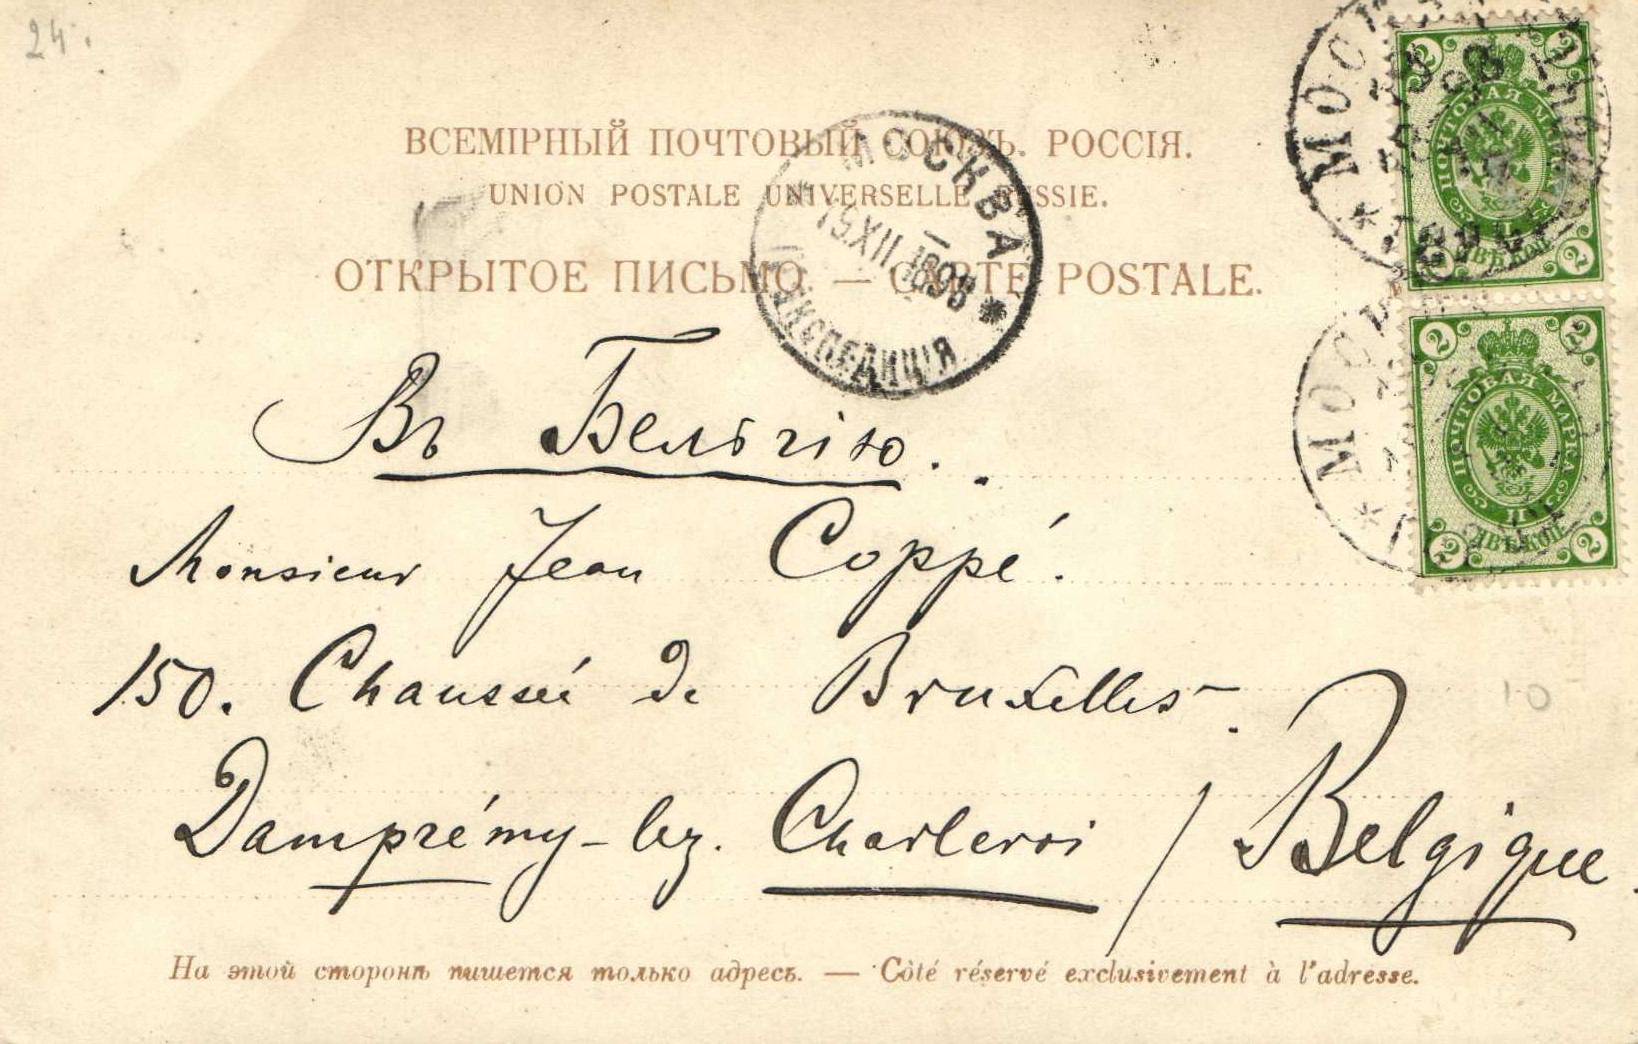 24.
ВСЕМІРНЫЙ ПОЧТОВЫЙ СОЮЗЪ. РОССІЯ.
UNION POSTALE UNIVERSELLE RUSSIE.
ОТКРЫТОЕ ПИСЬМО. — CARTE POSTALE.
МОСКВА
15.XII 1898
ЭКСПЕДИЦІЯ
МОСК
2 2
ПОЧТОВАЯ МАРКА
ДВѢ КОП.
2 2
МОСК
2 2
ПОЧТОВАЯ МАРКА
ДВѢ КОП.
2 2
Въ Бельгію.
Monsieur Jean Coppé.
150. Chaussée de Bruxelles.
Dampremy-lez. Charleroi / Belgique.
10
На этой сторонѣ пишется только адресъ. — Côté réservé exclusivement à l'adresse.